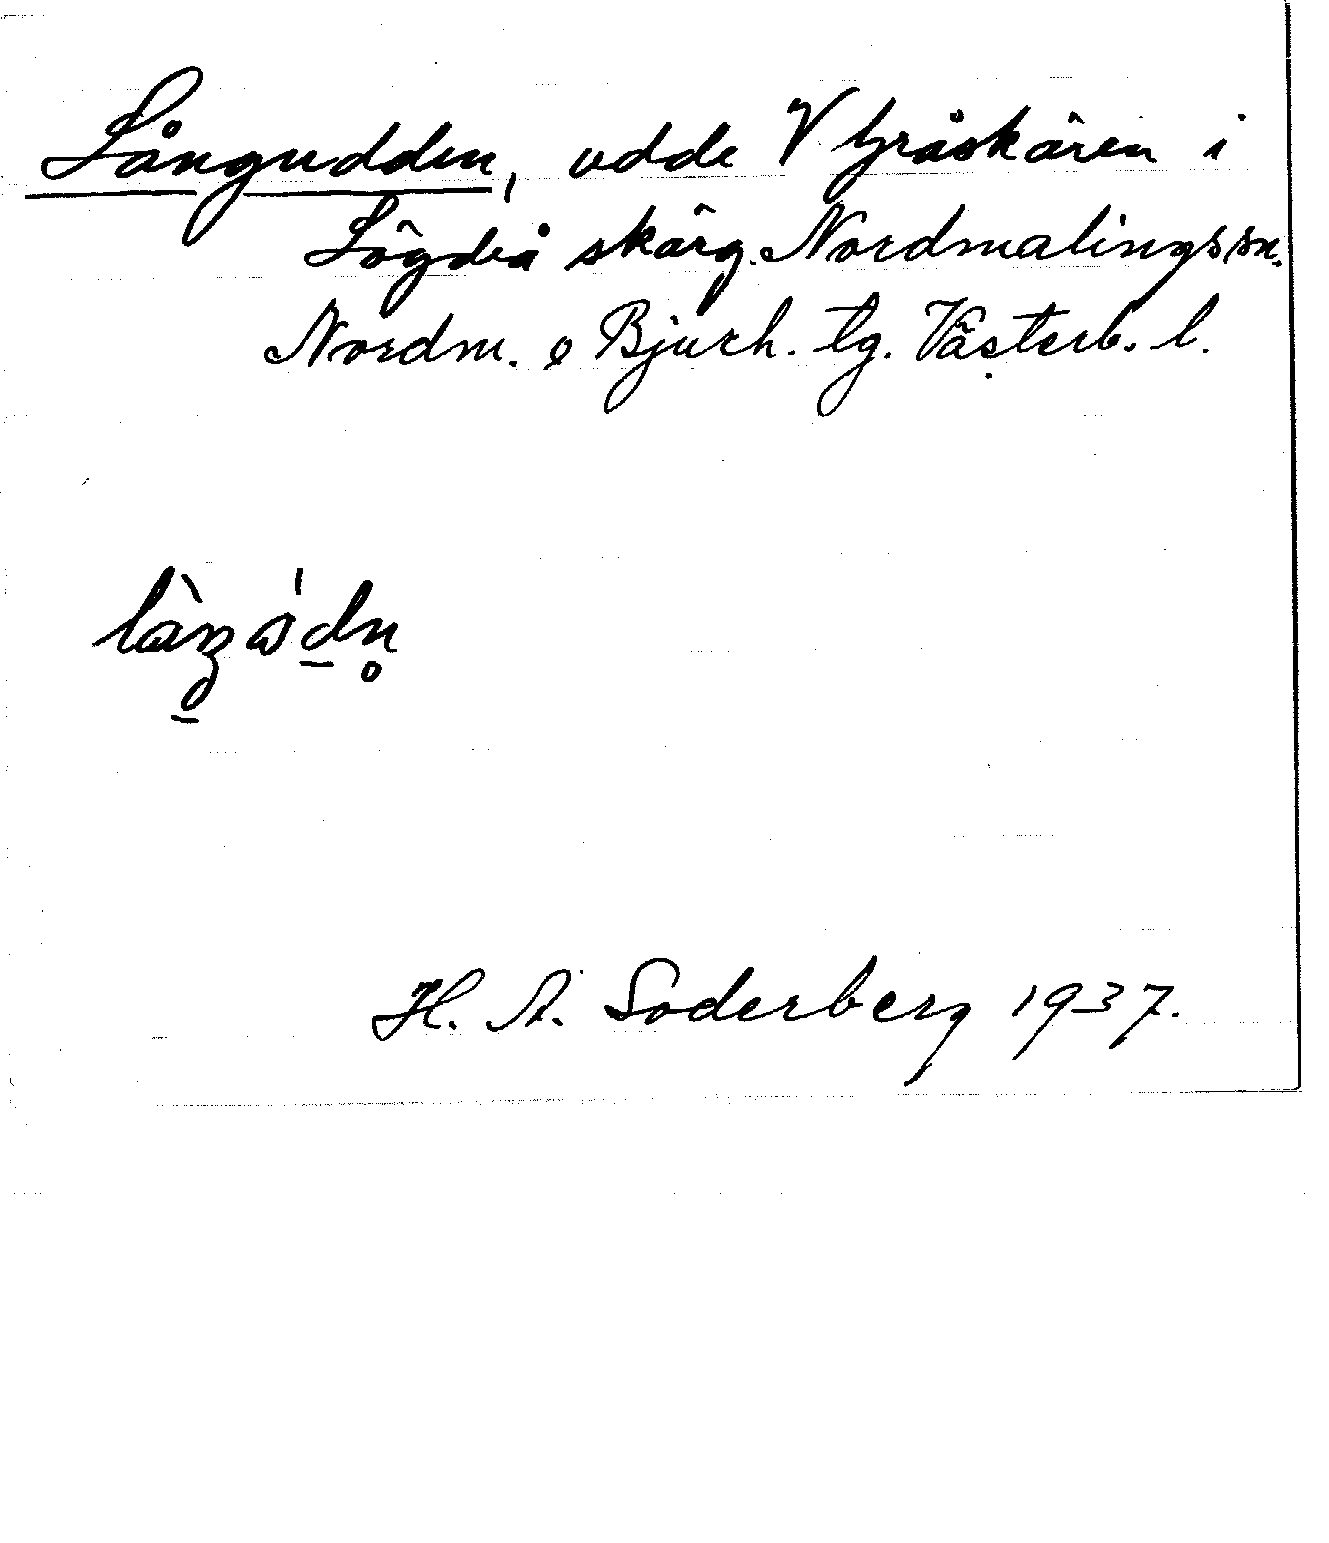 Långudden, udde V Gråskären i
Lögdeå skärg. Nordmalings sn.
Nordm. o Bjurh. tg. Västerb. l.
H. A. Söderberg 1937.